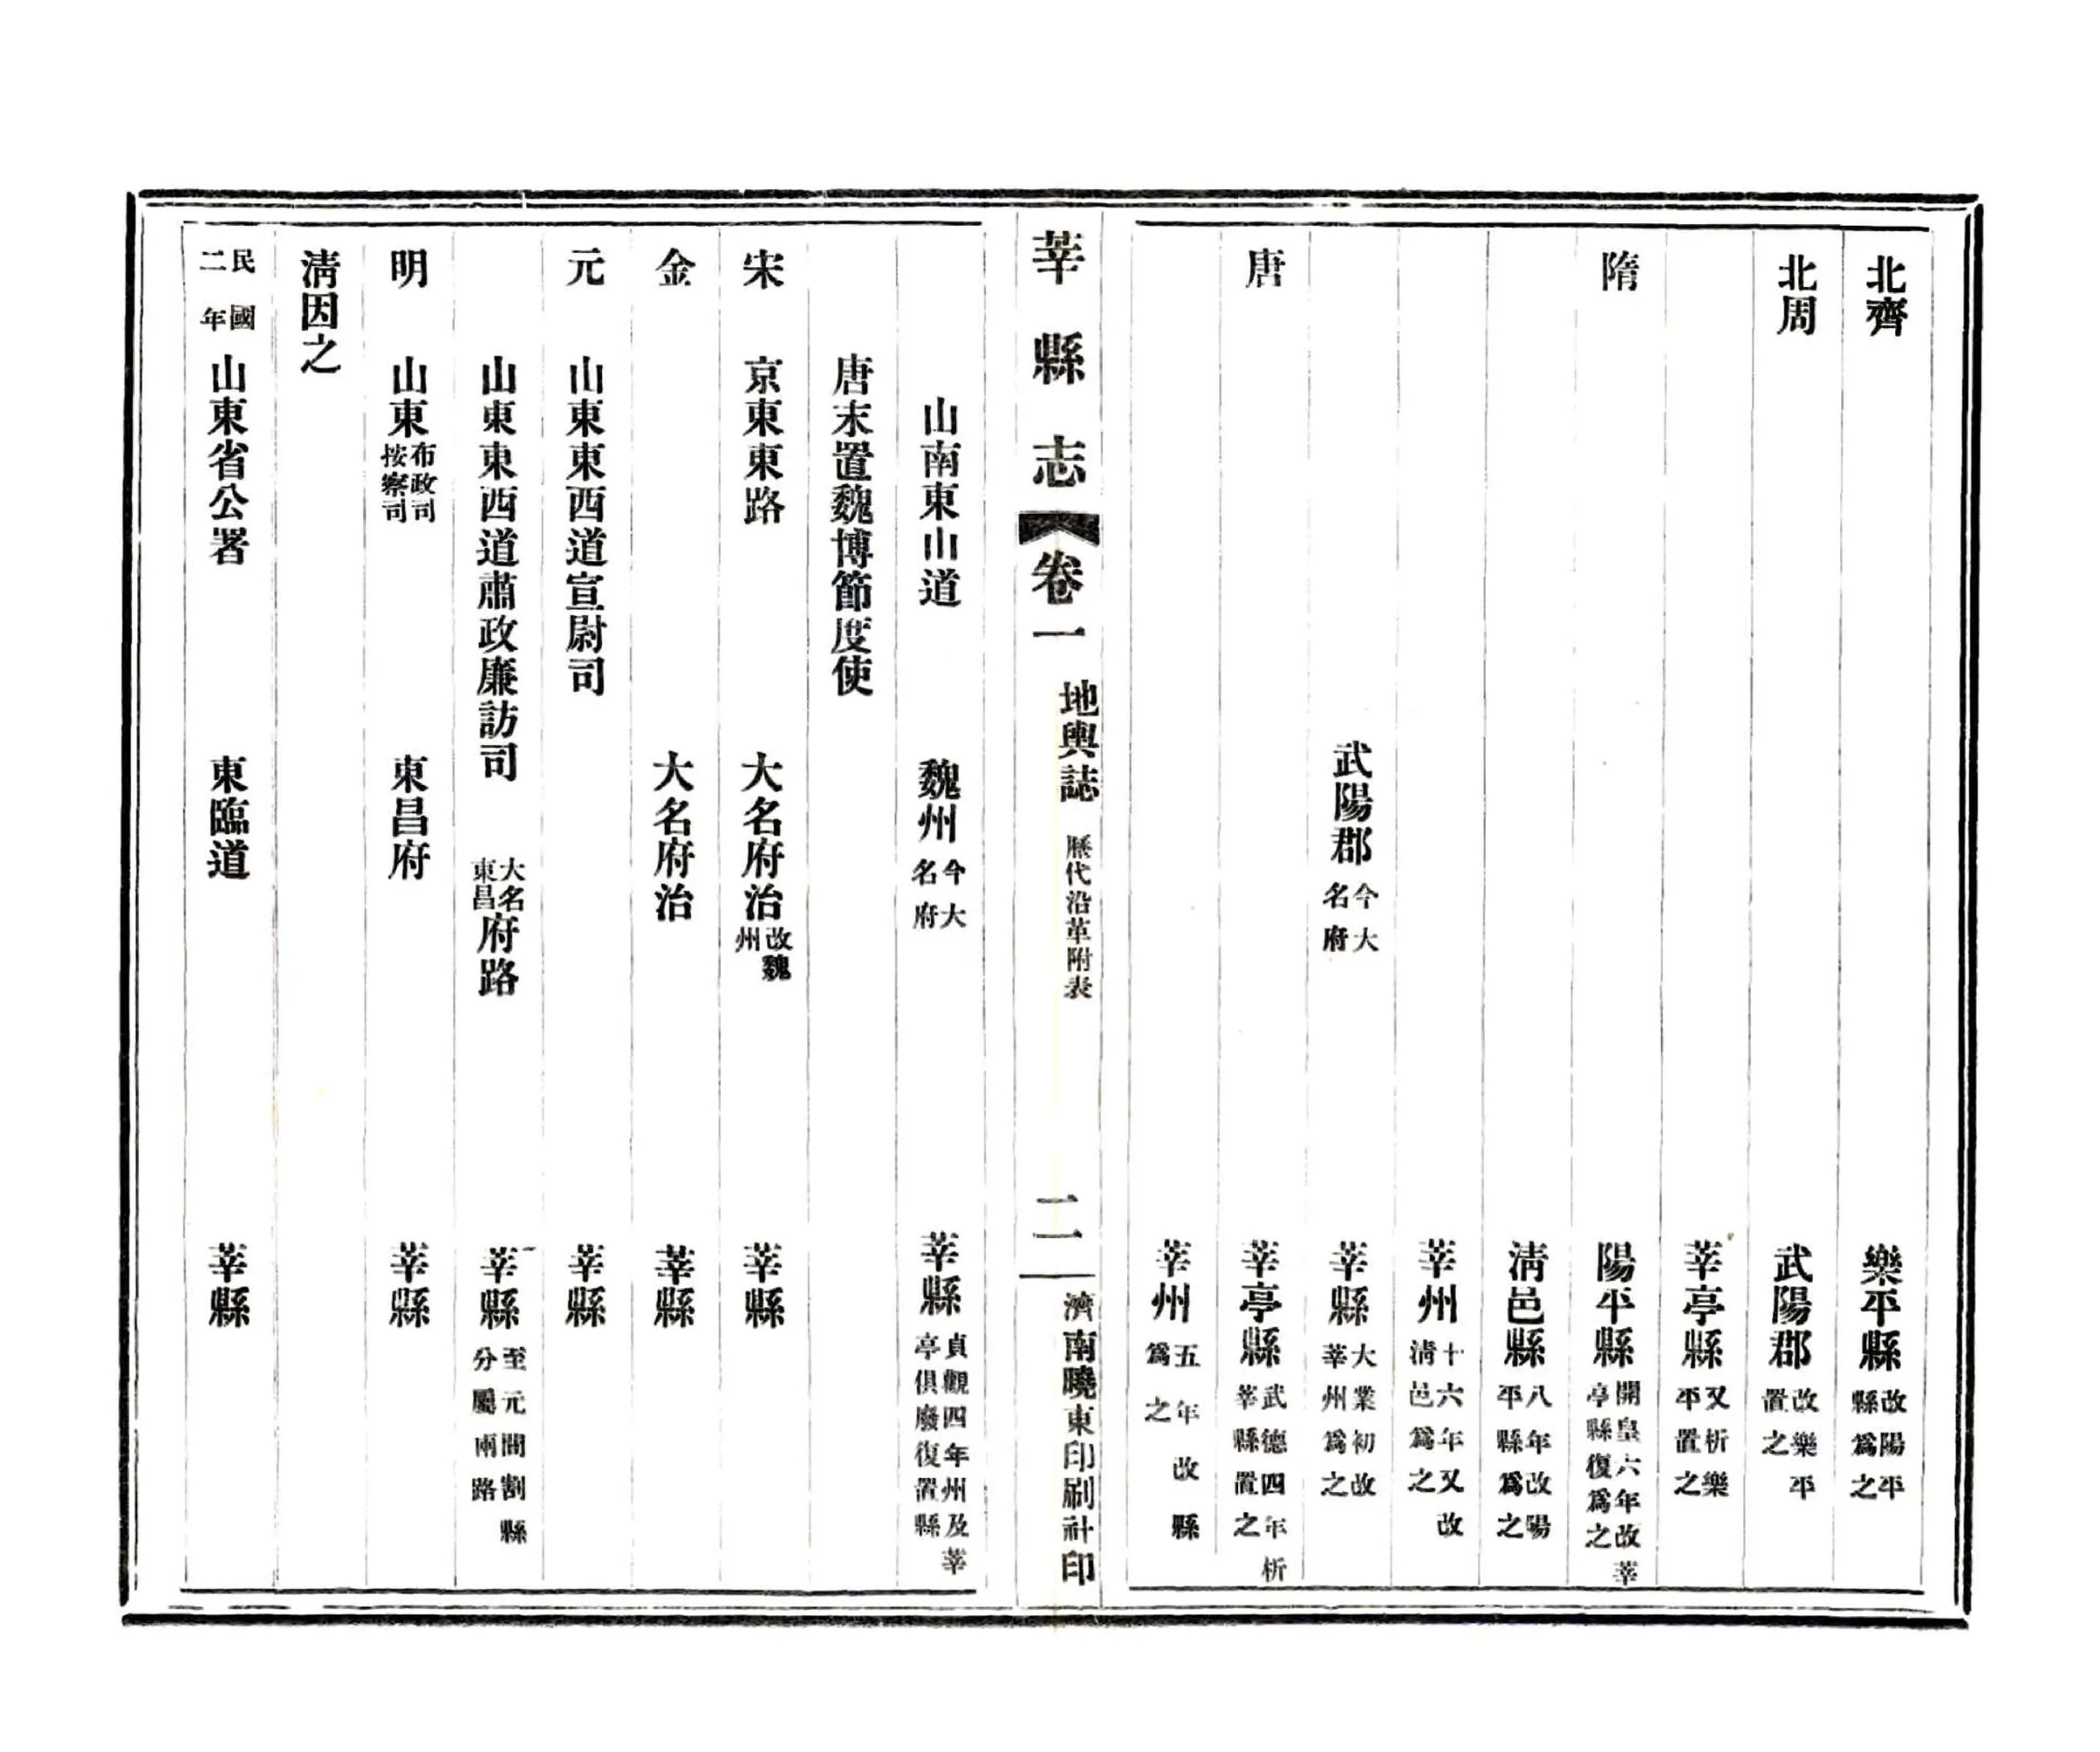 北齊 樂平縣 改陽平縣爲之
北周 武陽郡 改樂平置之
莘亭縣 又析樂平置之
隋 陽平縣 開皇六年改莘亭縣復爲之
清邑縣 八年改陽平縣爲之
莘州 十六年又改清邑爲之
武陽郡 今大名府 莘縣 大業初改莘州爲之
唐 莘亭縣 武德四年析莘縣置之
莘州 五年改縣爲之
莘縣志 卷一 地輿誌 歷代沿革附表 二 濟南曉東印刷社印
山南東山道 魏州 今大名府 莘縣 貞觀四年州及莘亭俱廢復置縣
唐末置魏博節度使
宋 京東東路 大名府治 改魏州 莘縣
金 大名府治 莘縣
元 山東東西道宣尉司 莘縣
山東東西道肅政廉訪司 大名東昌府路 莘縣 至元間割縣分屬兩路
明 山東布政司按察司 東昌府 莘縣
清因之
民國二年 山東省公署 東臨道 莘縣